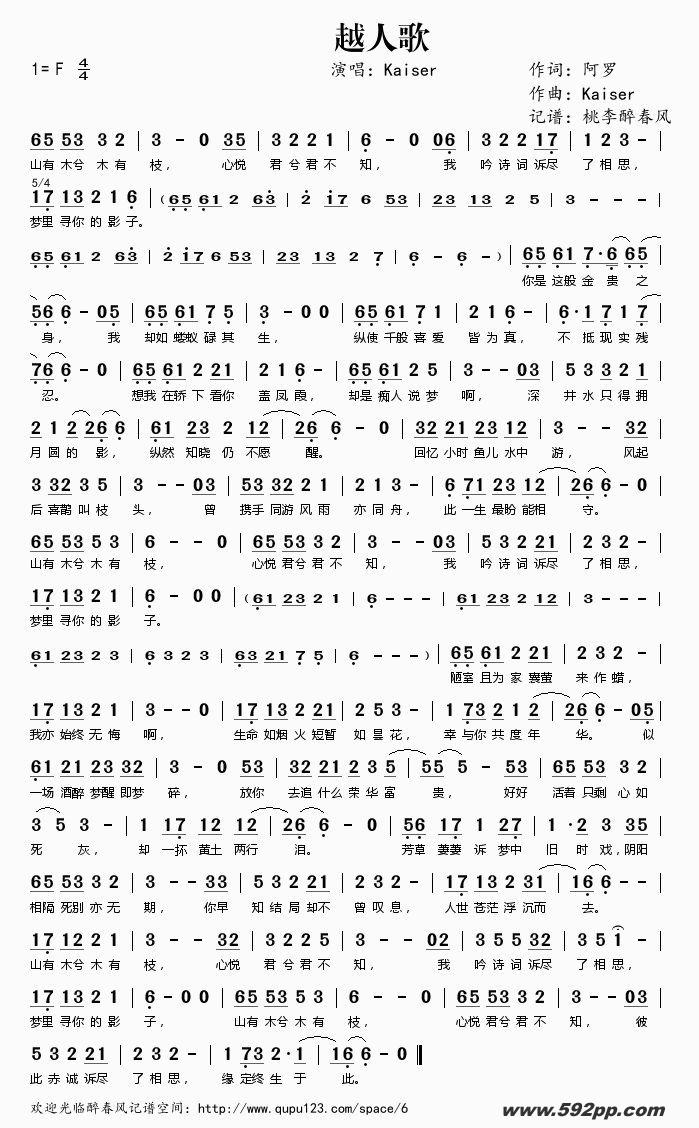 越人歌
1= F 4/4 演唱：Kaiser 作词：阿罗
作曲：Kaiser
记谱：桃李醉春风
65 53 3 2 | 3 - 0 35 | 3 2 2 1 | 6 - 0 06 | 3 2 2 17 |
山有 木兮 木 有 枝， 心悦 君 兮 君 不 知， 我 吟 诗 词 诉尽 了 相思，
5/4
17 13 2 1 6 | （65 61 2 63 | 2 17 6 53 | 23 13 2 5 | 3 - - - |
梦里 寻你 的 影 子。
65 61 2 63 | 2 17 6 53 | 23 13 2 7 | 6 - 6 - ）| 65 61 7·6 65 |
你是 这般 金 贵 之
56 6 - 05 | 65 61 7 5 | 3 - 0 0 | 65 61 7 1 | 2 1 6 - | 6·1 7 1 7 |
身， 我 却如 蝼蚁 碌 其 生， 纵使 千般 喜 爱 皆 为 真， 不 抵 现 实 残
76 6 - 0 | 65 61 2 21 | 2 1 6 - | 65 61 2 1 | 3 - - 03 | 5 3 3 21 |
忍。 想我 在轿 下 看你 盖 凤 霞， 却是 痴人 说 梦 啊， 深 井 水 只 得拥
2 1 2 26 6 | 61 23 2 12 | 26 6 - 0 | 32 21 23 12 | 3 - - 32 |
月 圆 的 影， 纵然 知晓 仍 不愿 醒。 回忆 小时 鱼儿 水中 游， 风起
3 32 3 5 | 3 - - 03 | 53 32 2 1 | 2 1 3 - | 6 71 23 12 | 26 6 - 0 |
后 喜鹊 叫 枝 头， 曾 携手 同游 风 雨 亦 同 舟， 此 一生 最盼 能相 守。
65 53 5 3 | 6 - - 0 | 65 53 3 2 | 3 - - 03 | 5 3 2 21 | 2 2 3 - |
山有 木兮 木 有 枝， 心悦 君兮 君 不 知， 我 吟 诗 词 诉尽 了 相 思，
17 13 2 1 | 6 - 0 0 |（61 23 2 1 | 6 - - - | 61 23 2 3 | 6 - - - |
梦里 寻你 的 影 子。
61 23 2 3 | 6 3 2 3 | 63 21 7 5 | 6 - - - ）| 65 61 2 21 | 2 3 2 - |
陋室 且为 家 囊萤 来 作 蜡，
17 13 2 1 | 3 - - 0 | 17 13 2 21 | 5 5 3 - | 1 73 2 1 2 | 26 6 - 05 |
我亦 始终 无 悔 啊， 生命 如烟 火 短暂 如 昙 花， 幸 与你 共 度 年 华。 似
61 21 23 12 | 3 - 0 53 | 32 21 2 3 5 | 55 5 - 53 | 65 53 3 2 |
一场 酒醉 梦醒 即梦 碎， 放你 去追 什么 荣 华 富 贵， 好好 活着 只剩 心 如
3 5 3 - | 1 17 12 12 | 26 6 - 0 | 56 17 1 27 | 1 ·2 3 35 |
死 灰， 却 一抔 黄土 两行 泪。 芳草 萋萋 诉 梦中 旧 时 戏，阴阳
65 53 3 2 | 3 - - 33 | 5 3 2 21 | 2 3 2 - | 17 13 2 31 | 16 6 - - |
相隔 死别 亦 无 期， 你早 知 结 局 却不 曾 叹 息， 人世 苍茫 浮 沉而 去。
17 12 2 1 | 3 - - 32 | 3 2 2 5 | 3 - - 02 | 3 5 5 53 | 3 5 1 - |
山有 木兮 木 有 枝， 心悦 君 兮 君 不 知， 我 吟 诗 词 诉尽 了 相 思，
17 13 2 1 | 6 - 0 0 | 65 53 5 3 | 6 - - 0 | 65 53 3 2 | 3 - - 03 |
梦里 寻你 的 影 子， 山有 木兮 木 有 枝， 心悦 君兮 君 不 知， 彼
5 3 2 21 | 2 2 3 - | 1 73 2 ·1 | 16 6 - 0 ‖
此 赤 诚 诉尽 了 相 思， 缘 定终 生 于 此。
欢迎光临醉春风记谱空间：http://www.qupu123.com/space/6
www.592pp.com